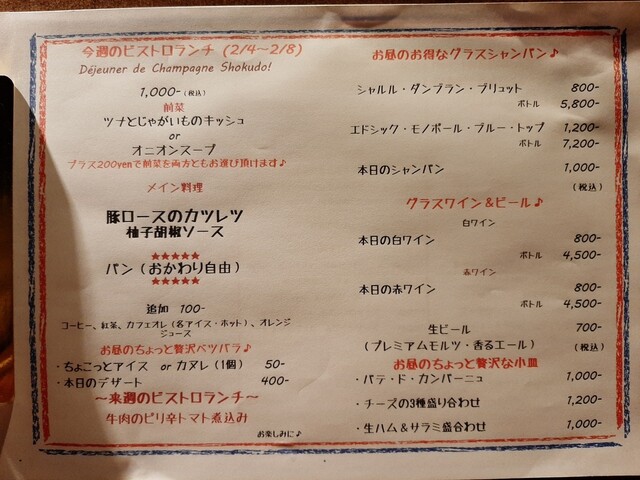 今週のビストロランチ (2/4〜2/8)
Déjeuner de Champagne Shokudo!
1,000-(税込)
前菜
ツナとじゃがいものキッシュ
or
オニオンスープ
プラス200yenで前菜を両方ともお選び頂けます♪
メイン料理
豚ロースのカツレツ
柚子胡椒ソース
★★★★★
パン(おかわり自由)
★★★★★
追加 100-
コーヒー、紅茶、カフェオレ(各アイス・ホット)、オレンジ
ジュース
お昼のちょっと贅沢ベツバラ♪
・ちょこっとアイス or カヌレ(1個) 50-
・本日のデザート 400-
〜来週のビストロランチ〜
牛肉のピリ辛トマト煮込み
お楽しみに♪
お昼のお得なグラスシャンパン♪
シャルル・ダンブラン・ブリュット 800-
ボトル 5,800-
エドシック・モノポール・ブルー・トップ 1,200-
ボトル 7,200-
本日のシャンパン 1,000-
(税込)
グラスワイン&ビール♪
白ワイン
本日の白ワイン 800-
ボトル 4,500-
赤ワイン
本日の赤ワイン 800-
ボトル 4,500-
生ビール 700-
(プレミアムモルツ・香るエール) (税込)
お昼のちょっと贅沢な小皿
・パテ・ド・カンパーニュ 1,000-
・チーズの3種盛り合わせ 1,200-
・生ハム&サラミ盛合わせ 1,000-